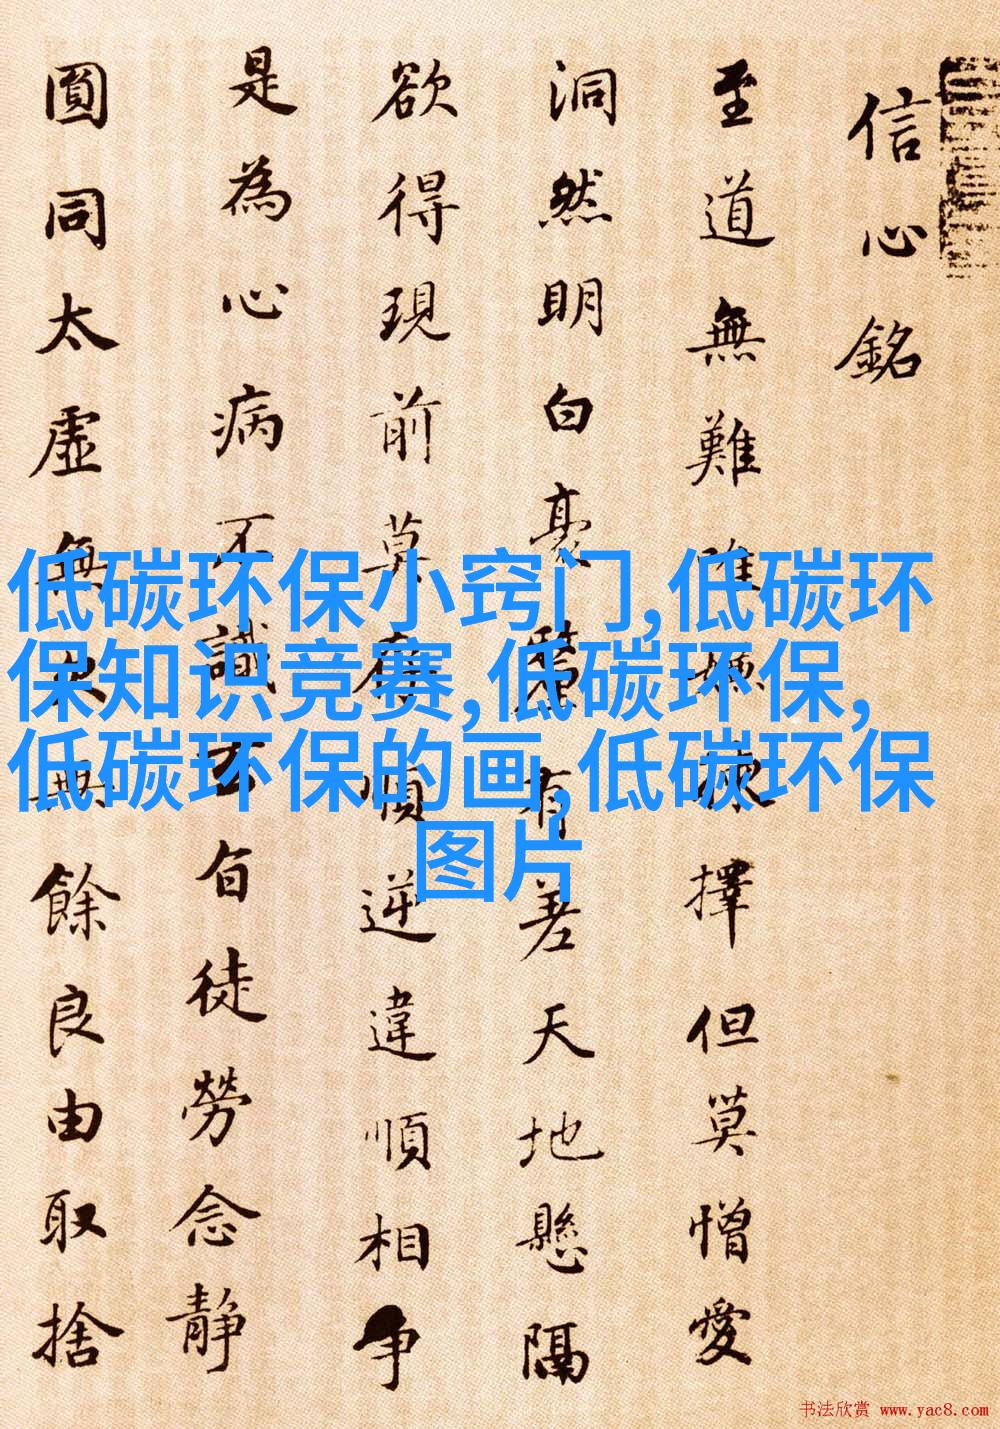 信心銘
至道無難唯嫌揀擇但莫憎愛
洞然明白毫釐有差天地懸隔
欲得現前莫存順逆違順相争
是為心病不識玄旨徒勞念静
圓同太虛無欠無餘良由取捨
低碳环保小窍门,低碳环
保知识竞赛,低碳环保,
低碳环保的画,低碳环保
图片
书法欣赏 www.yac8.com